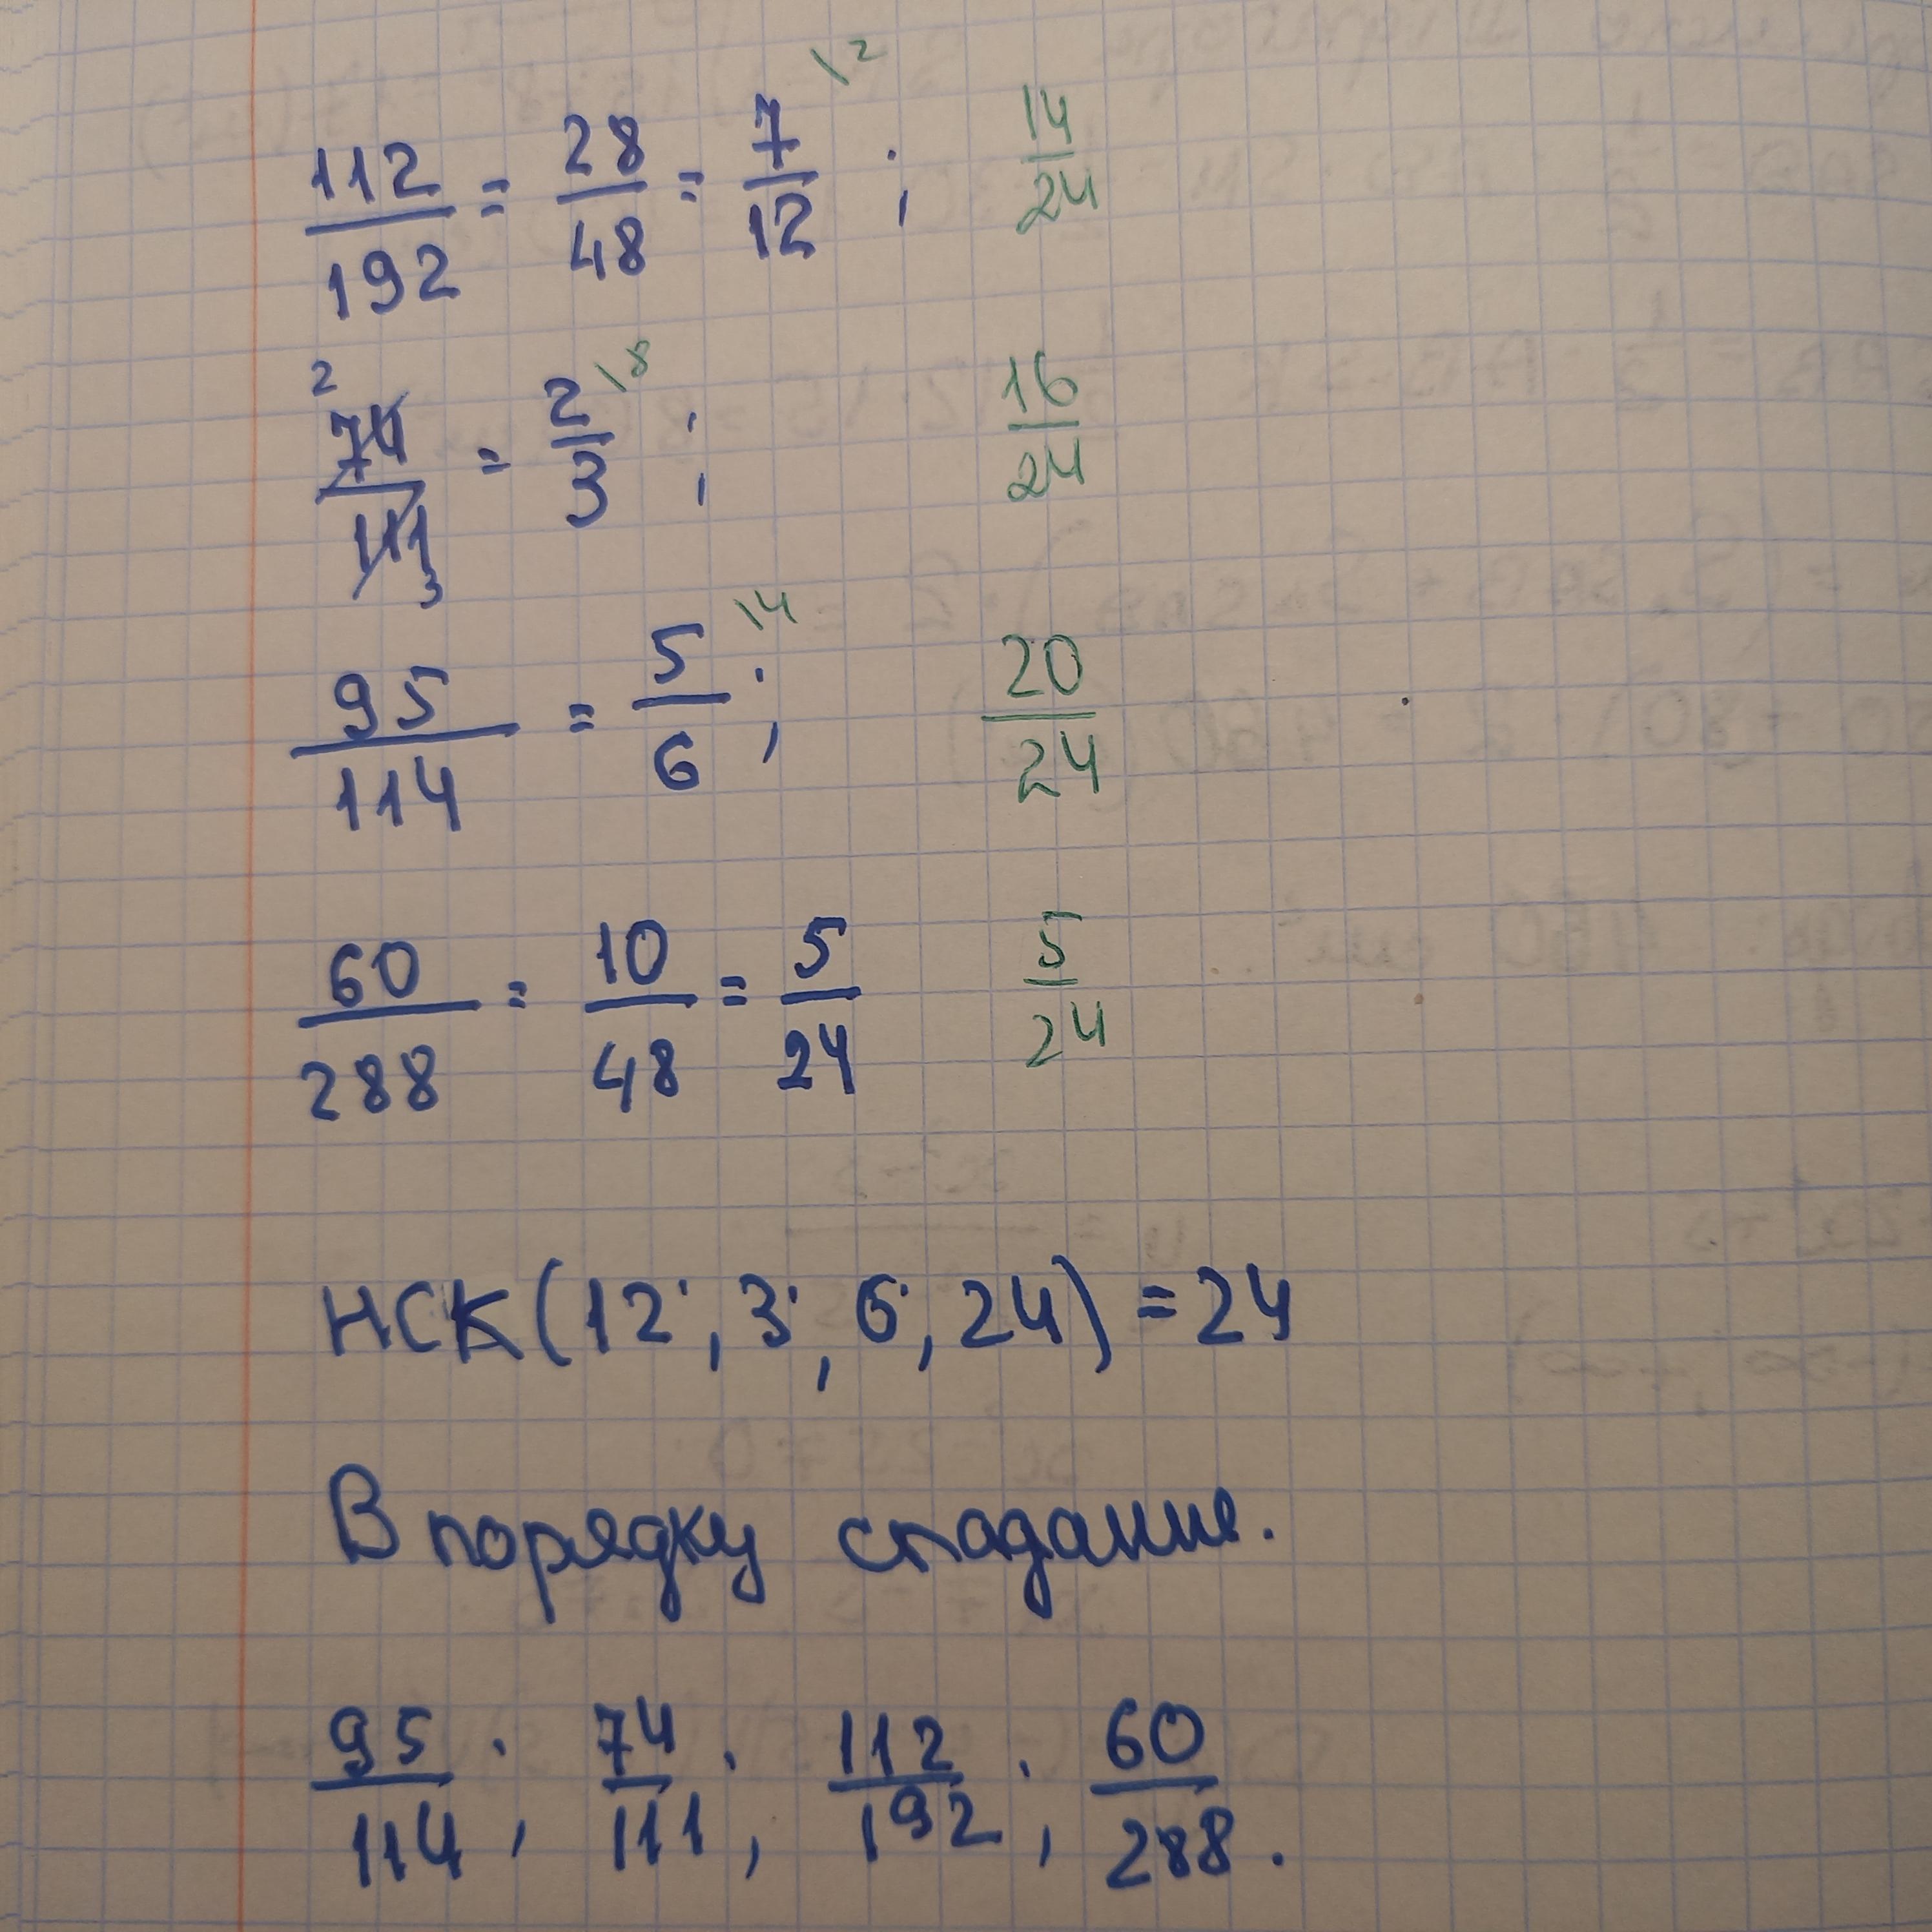 112/192 = 28/48 = 7/12 \2 ; 14/24
2 74/111 3 = 2/3 \8 ; 16/24
95/114 = 5/6 \4 ; 20/24
60/288 = 10/48 = 5/24 5/24
НСК(12; 3; 6; 24) = 24
В порядку спадання.
95/114 ; 74/111 ; 112/192 ; 60/288 .